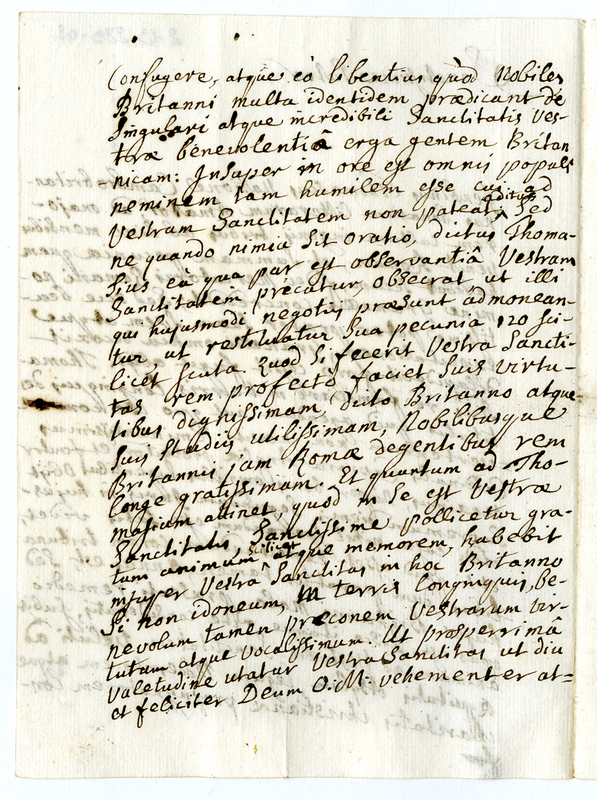 Confugere, atque eò libentius quòd Nobiles
Britanni multa identidem prædicant de
Singulari atque incredibili Sanctitatis Ves-
træ benevolentiâ erga gentem Britan
nicam: Insuper in ore est omnis populi
neminem tam humilem esse cui ad
Vestram Sanctitatem non pateat aditus. Sed
ne quando nimia sit oratio, dictus Thoma-
sius eâ qua par est observantiâ Vestram
Sanctitatem precatur, obsecrat, ut illi
qui hujusmodi negotiis præsunt admonean-
tur, ut restituatur Sua pecunia 120 sci-
licet scuta. Quod Si fecerit Vestra Sancti-
tas rem profectò faciet Suis virtu-
tibus dignissimam, dicto Britanno atque
Suis Studiis utilissimam, Nobilibusque
Britannis jam Romæ degentibus rem
longe gratissimam. Et quantum ad Tho-
masium attinet, quod in Se est Vestræ
Sanctitati, Sanctissime pollicetur gra-
tum animum scilicet atque memorem, habebit
insuper Vestra Sanctitas in hoc Britanno
Si non idoneum, in terris longinquis, be-
nevolum tamen præconem Vestrarum vir-
tutum atque vocalissimum. Ut prosperrimâ
valetudine utatur Vestra Sanctitas ut diu
et feliciter Deum O. M. vehementer at=